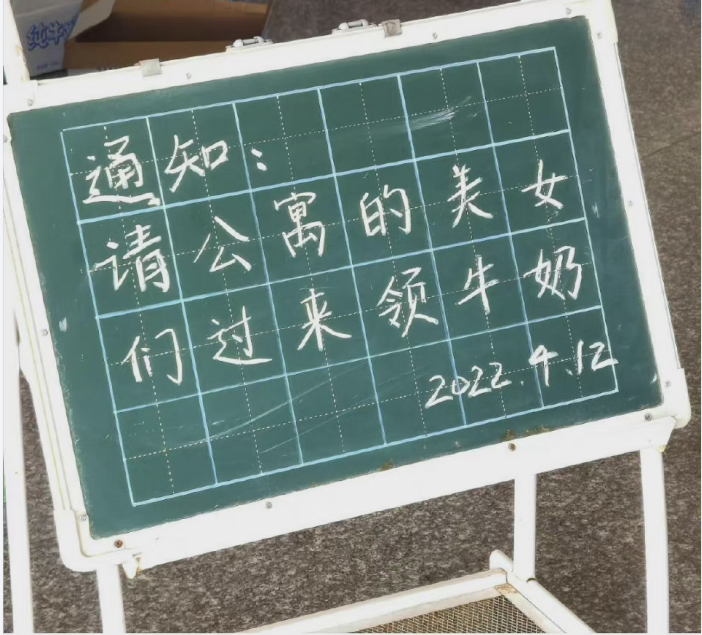 纯牛
通知:
请公寓的美女
们过来领牛奶
2022.4.12